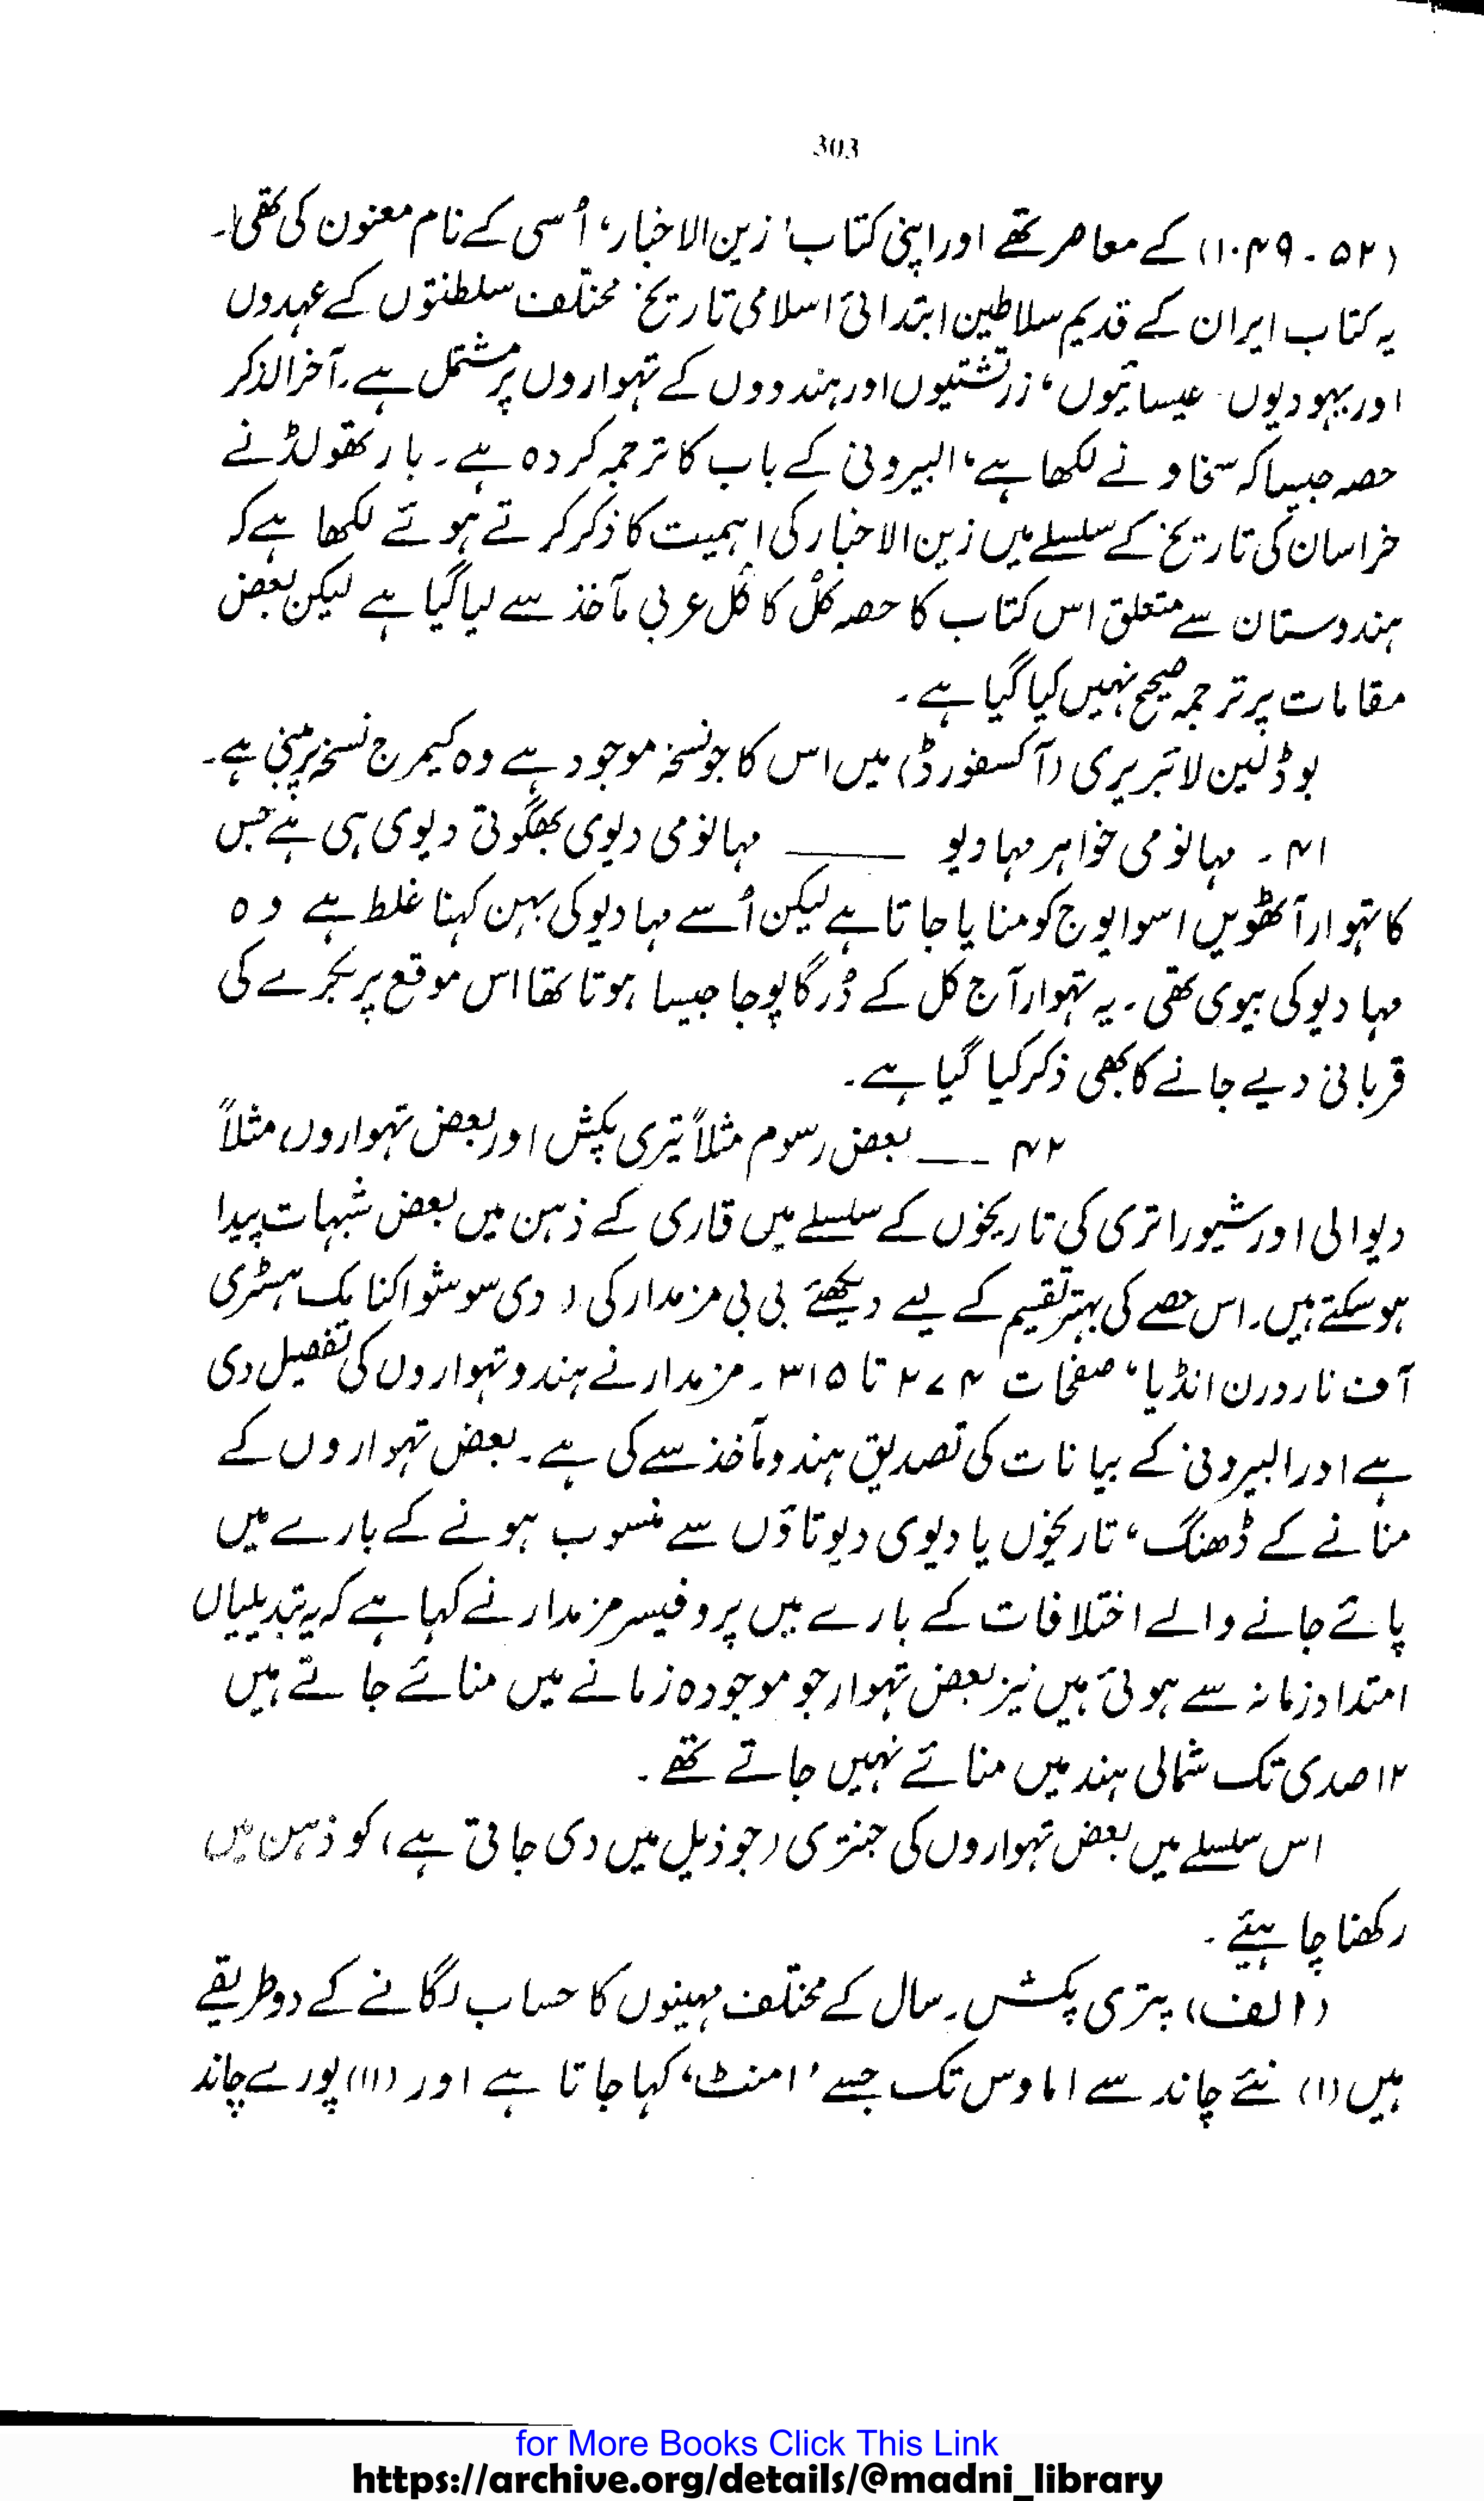 303
(۵۲ - ۱۰۴۹) کے معاصر تھے اور اپنی کتاب 'زین الاخبار' اُسی کے نام معنون کی تھی۔
یہ کتاب ایران کے قدیم سلاطین ابتدائی اسلامی تاریخ مختلف سلطنتوں کے عہدوں
اور یہودیوں۔ عیسائیوں، زرتشتیوں اور ہندووں کے تہواروں پر مشتمل ہے۔ آخرالذکر
حصہ جیسا کہ سخاو نے لکھا ہے، البیرونی کے باب کا ترجمہ کردہ ہے۔ بارتھولڈ نے
خراسان کی تاریخ کے سلسلے میں زین الاخبار کی اہمیت کا ذکر کرتے ہوئے لکھا ہے کہ
ہندوستان سے متعلق اس کتاب کا حصہ کُل کا کُل عربی مآخذ سے لیا گیا ہے لیکن بعض
مقامات پر ترجمہ صحیح نہیں کیا گیا ہے۔
بوڈلین لائبریری (آکسفورڈ) میں اس کا جو نسخہ موجود ہے وہ کیمرج نسخہ پر مبنی ہے۔
۴۱ ۔ مہانومی خواہر مہادیو ــــــ مہانومی دیوی بھگوتی دیوی ہی ہے جس
کا تہوار آٹھویں اسوایوج کو منایا جاتا ہے لیکن اُسے مہادیو کی بہن کہنا غلط ہے وہ
مہادیو کی بیوی تھی۔ یہ تہوار آج کل کے دُرگا پوجا جیسا ہوتا تھا اس موقع پر بکرے کی
قربانی دیے جانے کا بھی ذکر کیا گیا ہے۔
۴۲ ـــ بعض رسوم مثلاً پتری پکش اور بعض تہواروں مثلاً
دیوالی اور شیوراتری کی تاریخوں کے سلسلے میں قاری کے ذہن میں بعض شبہات پیدا
ہوسکتے ہیں۔ اس حصے کی بہتر تفہیم کے لیے دیکھئے بی پی مزمدار کی 'دی سوشو اکنامک ہسٹری
آف ناردرن انڈیا' صفحات ۲۷۴ تا ۳۱۵ ۔ مزمدار نے ہندو تہواروں کی تفصیل دی
ہے اور البیرونی کے بیانات کی تصدیق ہندو مآخذ سے کی ہے۔ بعض تہواروں کے
منانے کے ڈھنگ، تاریخوں یا دیوی دیوتاؤں سے منسوب ہونے کے بارے میں
پائے جانے والے اختلافات کے بارے میں پروفیسر مزمدار نے کہا ہے کہ یہ تبدیلیاں
امتداد زمانہ سے ہوئی ہیں نیز بعض تہوار جو موجودہ زمانے میں منائے جاتے ہیں
۱۲ صدی تک شمالی ہند میں منائے نہیں جاتے تھے۔
اس سلسلے میں بعض تہواروں کی جنتری (جو ذیل میں دی جاتی ہے) کو ذہن میں
رکھنا چاہیئے۔
(الف) پتری پکش۔ سال کے مختلف مہینوں کا حساب لگانے کے دو طریقے
ہیں (۱) نئے چاند سے اماوس تک جسے 'امنٹ' کہا جاتا ہے اور (۱۱) پورے چاند
for More Books Click This Link
https://archive.org/details/@madni_library